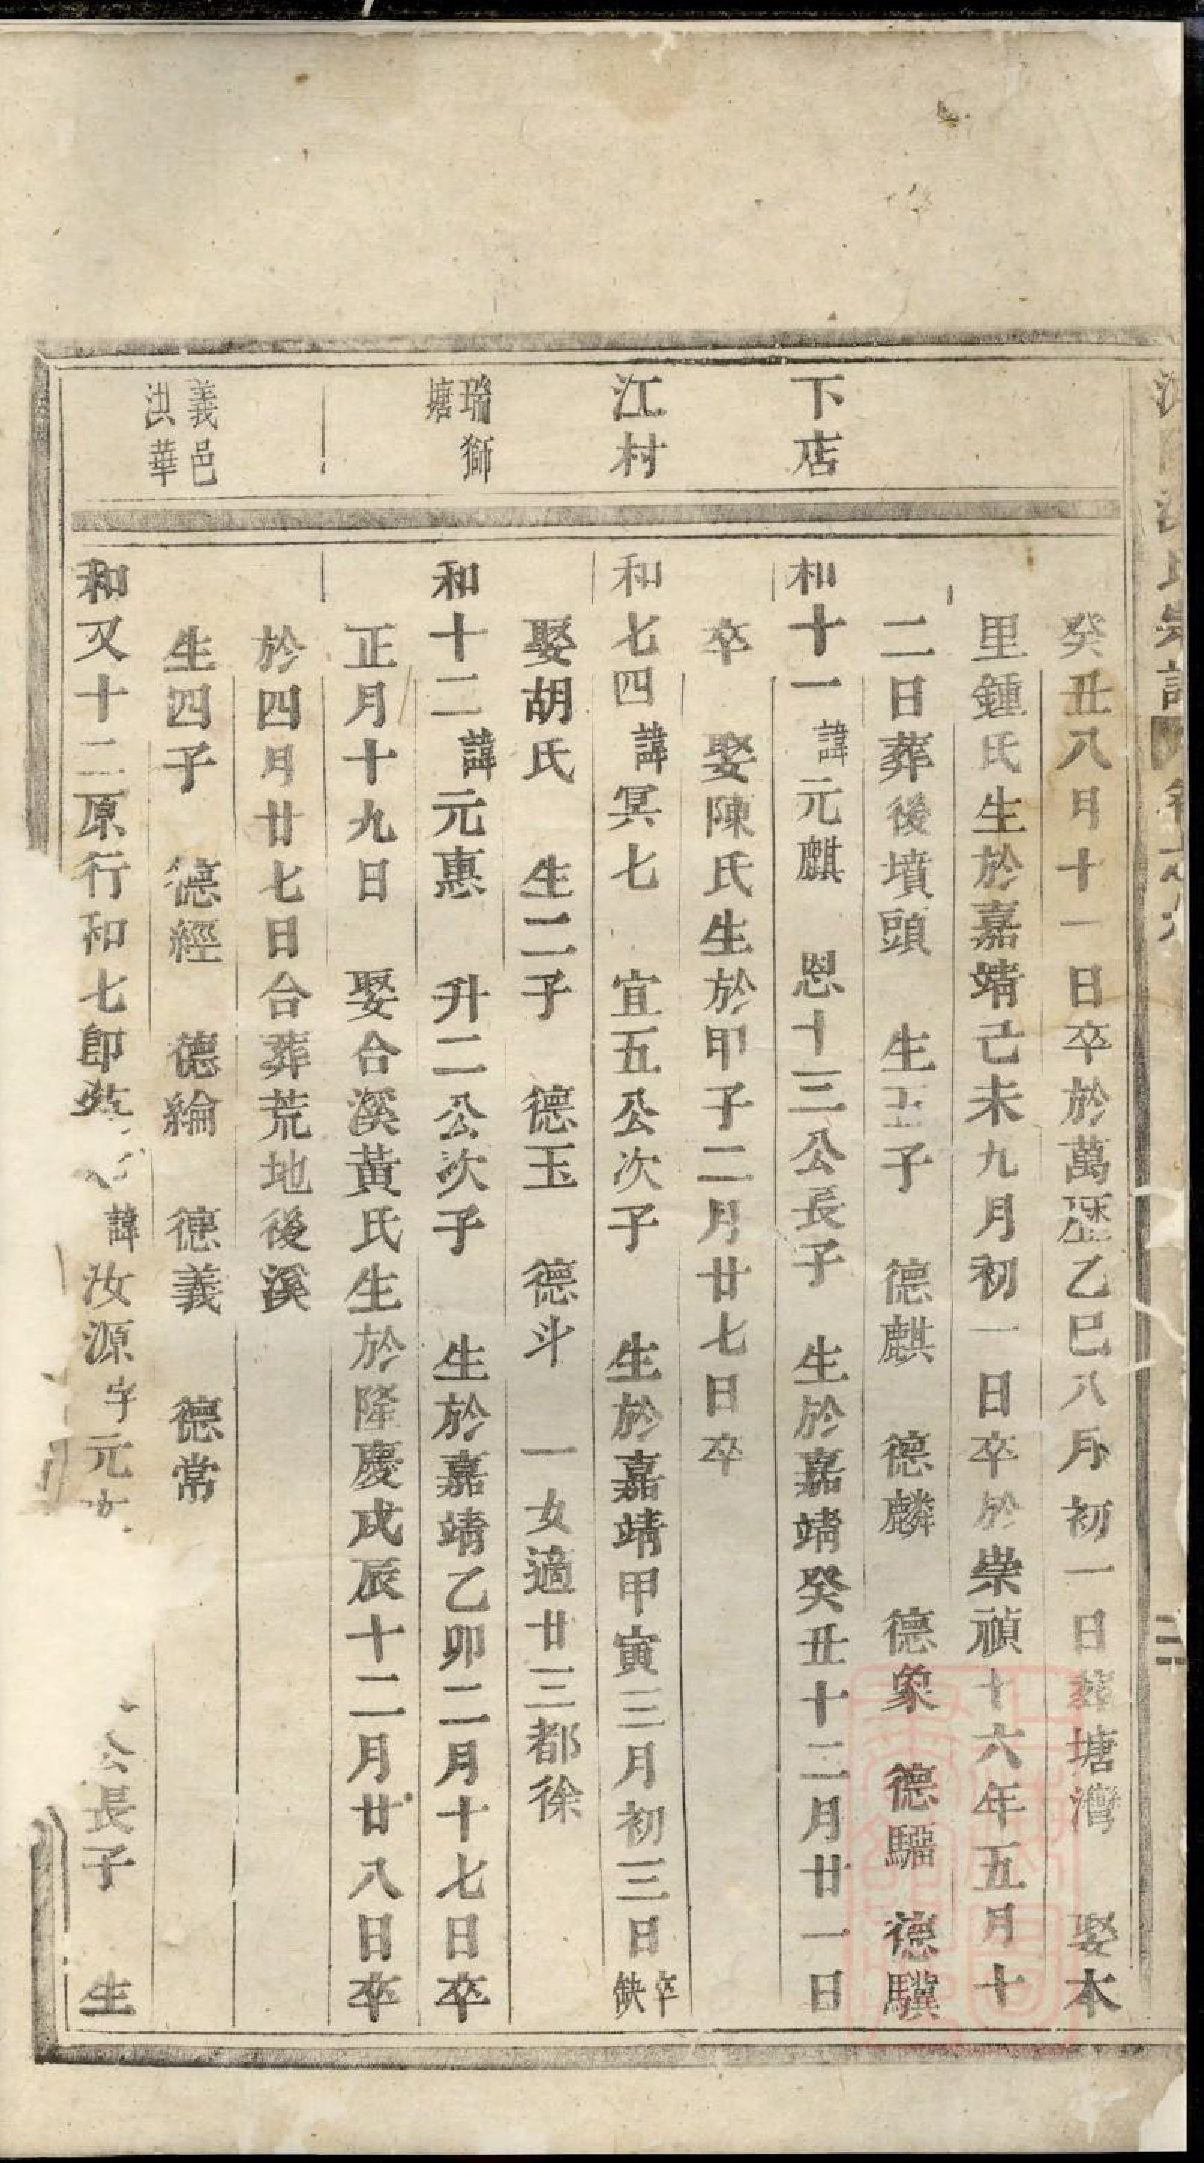 下店
江村
瑞獅塘
義邑洪華
癸丑八月十一日卒於萬歷乙巳八月初一日葬塘灣 娶本
里鍾氏生於嘉靖己未九月初一日卒於崇禎十六年五月十
二日葬後墳頭 生五子 德麒 德麟 德象 德騮 德驥
和十一諱元麒 恩十三公長子 生於嘉靖癸丑十二月廿一日
卒 娶陳氏生於甲子二月廿七日卒
和七四諱冥七 宜五公次子 生於嘉靖甲寅三月初三日卒缺
娶胡氏 生二子 德玉 德斗 一女適廿三都徐
和十二諱元惠 升二公次子 生於嘉靖乙卯二月十七日卒
正月十九日 娶合溪黃氏生於隆慶戊辰十二月廿八日卒
於四月廿七日合葬荒地後溪
生四子 德經 德綸 德義 德常
和又十二原行和七郎 諱汝源字元 公長子 生